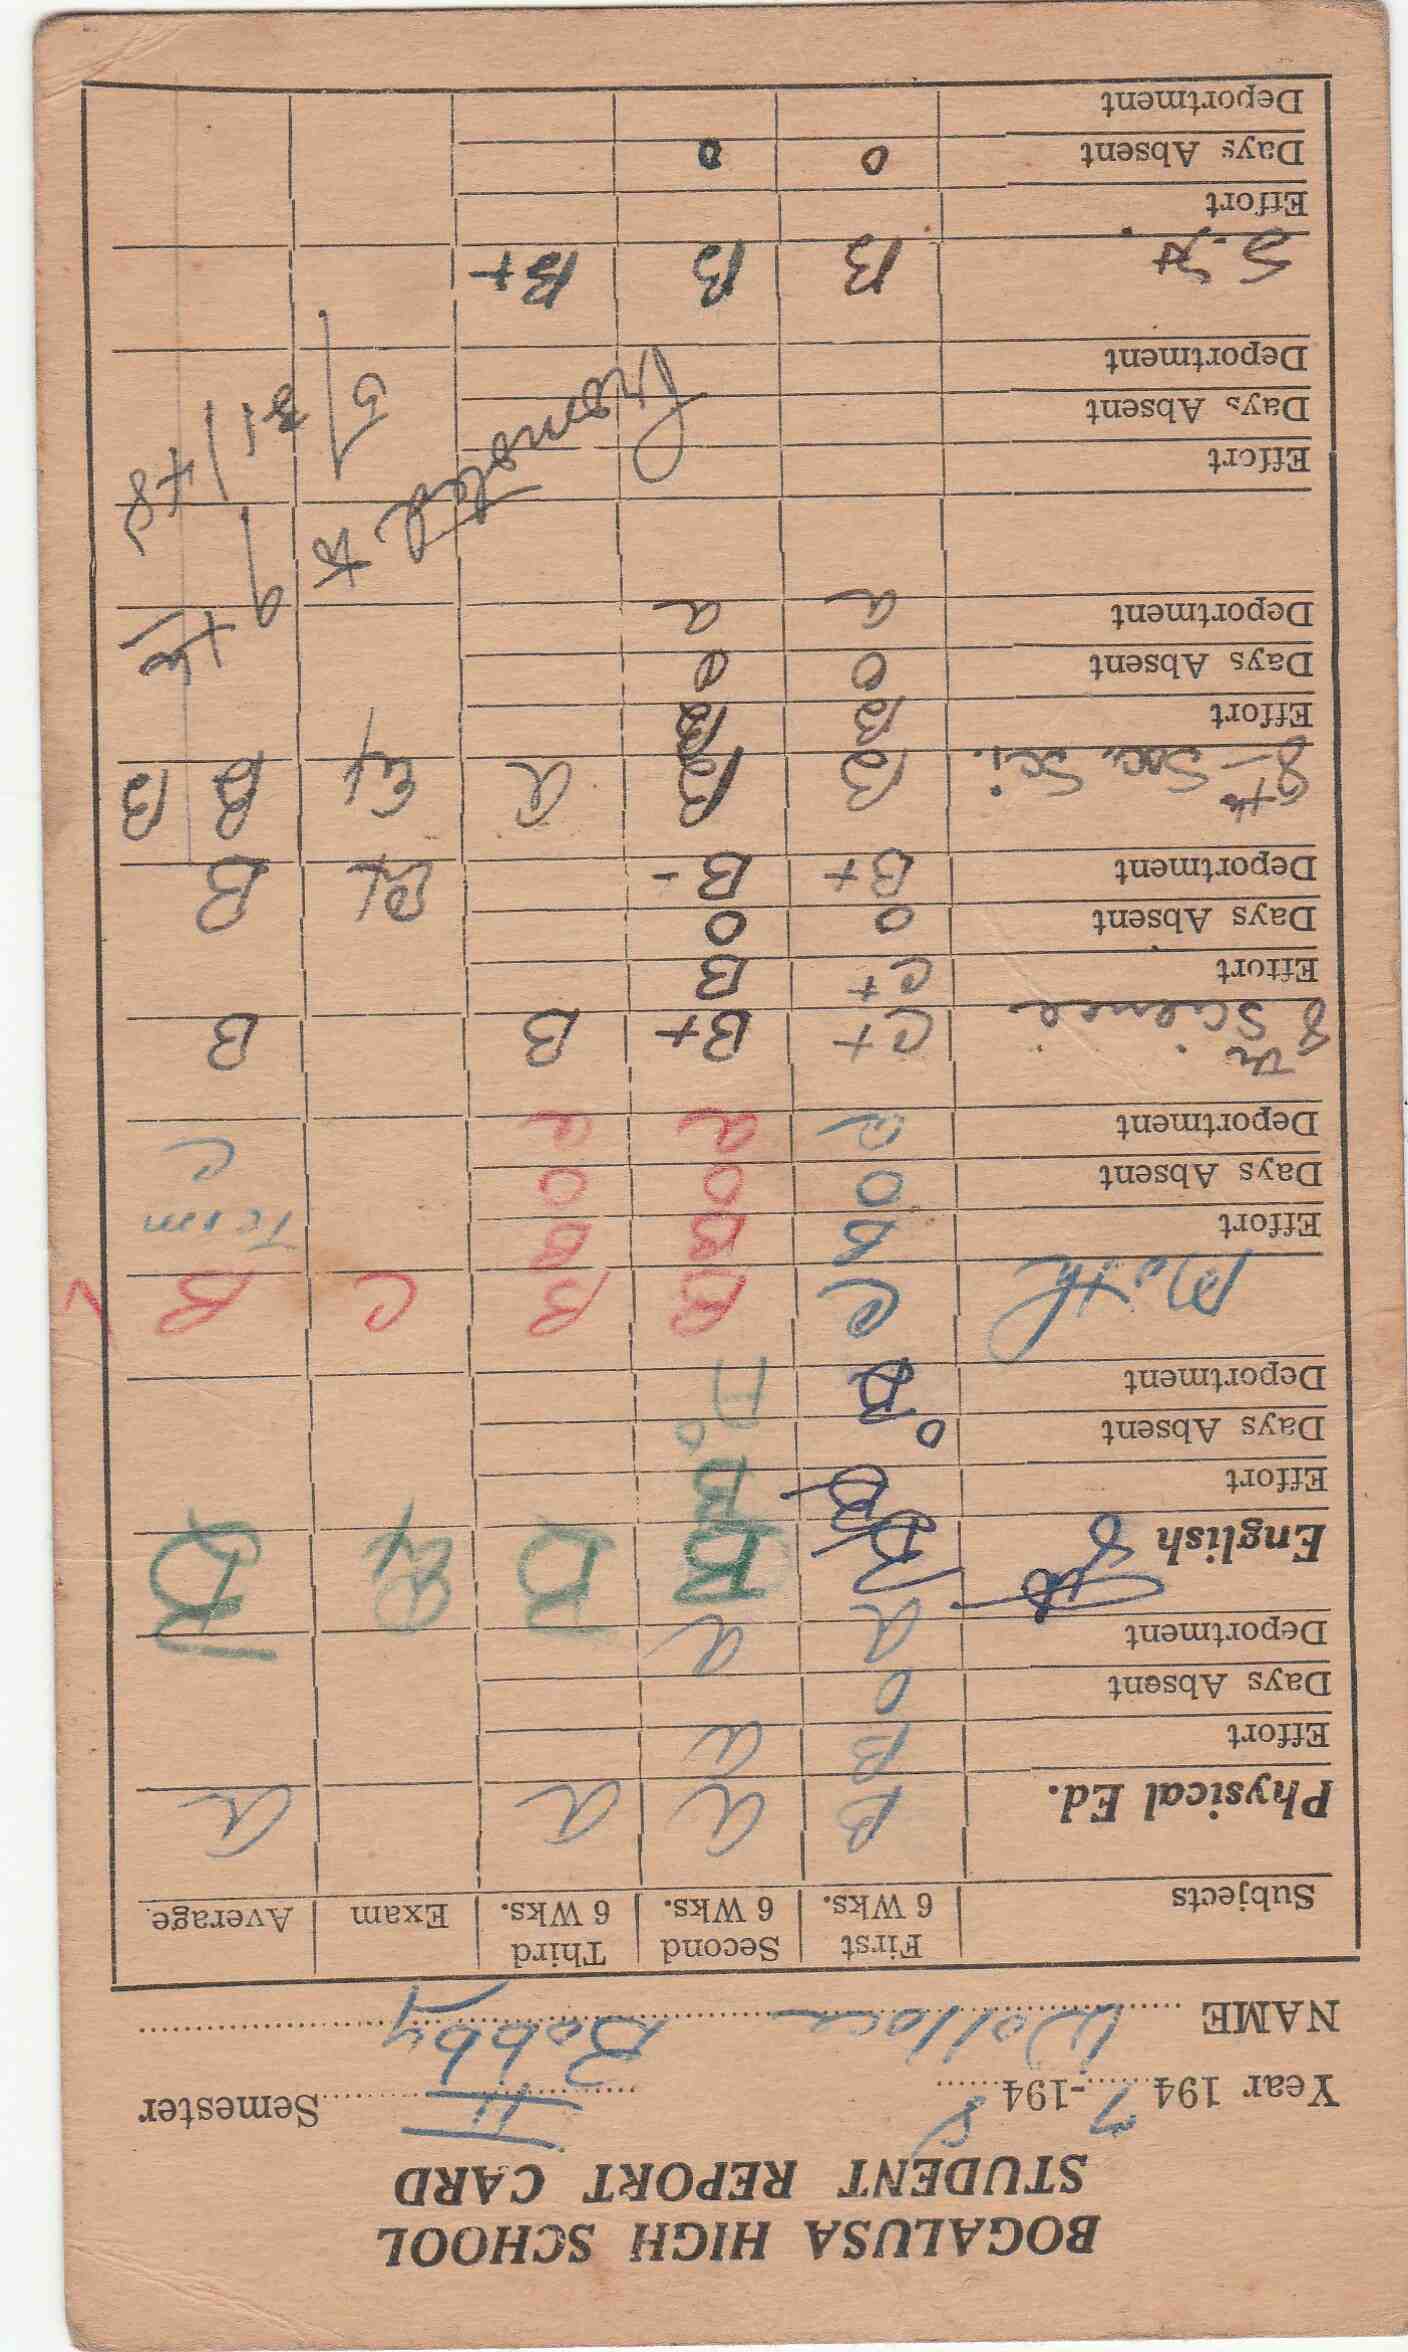 BOGALUSA HIGH SCHOOL
STUDENT REPORT CARD
Year 1947-1948 II Semester
NAME Wallace Bobby
Subjects First 6 Wks. Second 6 Wks. Third 6 Wks. Exam Average
Physical Ed. B a a a
Effort B a
Days Absent 0
Deportment a a
8th English B B B Ex B
Effort B B
Days Absent 0 0
Deportment B A
Math C B B C B
Effort B B B Term
Days Absent 0 0 0 C
Deportment a a a
8th Science C+ B+ B B
Effort C+ B
Days Absent 0 0
Deportment B+ B- Ex B
8th Soc. Sci. B B a Ex B B
Effort B B
Days Absent 0 0
Deportment a a
Promoted to 9th
Effort
Days Absent
Deportment
5/31/48
S.H. B B B+
Effort
Days Absent 0 0
Deportment